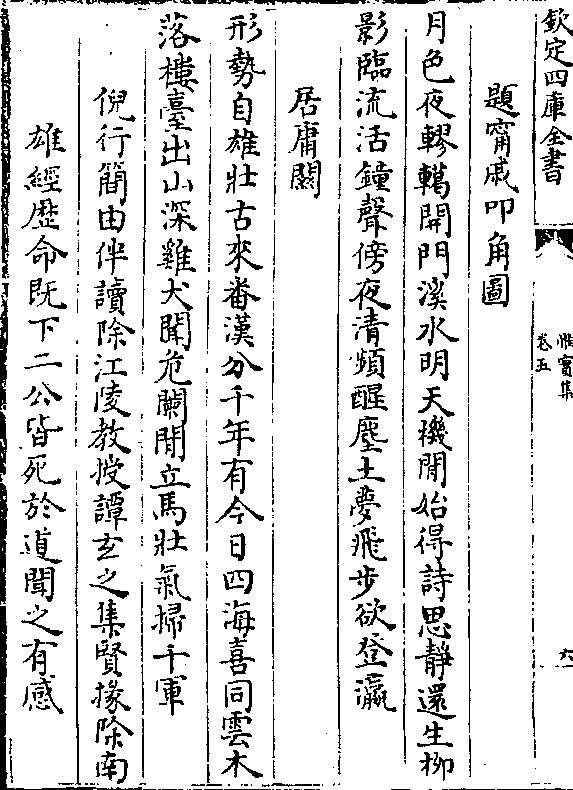 欽定四庫全書
惟實集
卷五
六
題甯戚叩角圖
月色夜轇轕開門溪水明天機閒始得詩思靜還生柳
影臨流活鐘聲傍夜清頻醒塵土夢飛步欲登瀛
居庸關
形勢自雄壯古來畨漢分千年有今日四海喜同雲木
落樓臺出山深雞犬聞危闌閒立馬壯氣掃千軍
倪行簡由伴讀除江陵教授譚玄之集賢掾除南
雄經歴命既下二公皆死於道聞之有感